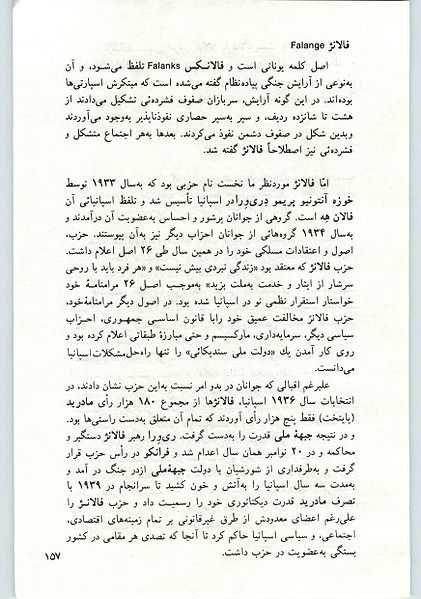 فالانژ Falange
اصل کلمه یونانی است و فالانـکس Falanks تلفظ می‌شود، و آن
به‌نوعی از آرایش جنگی پیاده‌نظام گفته می‌شده است که مبتکرش اسپارتی‌ها
بوده‌اند. در این گونه آرایش، سربازان صفوف فشرده‌ئی تشکیل می‌دادند از
هشت تا شانزده ردیف، و سپر به‌سپر حصاری نفوذناپذیر به‌وجود می‌آوردند
وبدین شکل در صفوف دشمن نفوذ می‌کردند. بعدها به‌هر اجتماع متشکل و
فشرده‌ئی نیز اصطلاحاً فالانژ گفته شد.
امّا فالانژ موردنظر ما نخست نام حزبی بود که به‌سال ۱۹۳۳ توسط
خوزه آنتونیو پریمو دِریورا در اسپانیا تأسیس شد و تلفظ اسپانیائی آن
فالان هِه است. گروهی از جوانان پرشور و احساس به‌عضویت آن درآمدند و
به‌سال ۱۹۳۴ گروه‌هائی از جوانان احزاب دیگر نیز به‌آن پیوستند. حزب،
اصول و اعتقادات مسلکی خود را در همین سال طی ۲۶ اصل اعلام داشت.
حزب فالانژ که معتقد بود «زندگی نبردی بیش نیست» و «هر فرد باید با روحی
سرشار از ایثار و خدمت به‌ملت بزید» به‌موجب اصـل ۲۶ مرامنامـهٔ خود
خواستار استقرار نظمی نو در اسپانیا شده بود. در اصول دیگر مرامنامهٔ‌خود،
حزب فالانژ مخالفت عمیق خود رابا قانون اساسـی جمهـوری، احـزاب
سیاسی دیگر، سرمایه‌داری، مارکسیسم و حتی مبارزهٔ طبقاتی اعلام کرده بود و
روی کار آمدن یك «دولت ملی سندیکائی» را تنها راه‌حل‌مشکلات‌اسپانیا
می‌دانست.
علیرغم اقبالی که جوانان در بدو امر نسبت به‌این حزب نشان دادند، در
انتخابات سال ۱۹۳۶ اسپانیا، فالانژها از مجموع ۱۸۰ هزار رأی مادرید
(پایتخت) فقط پنج هزار رأی آوردند که تمام آن متعلق به‌دست راستی‌ها بود.
و در نتیجه جبههٔ ملی قدرت را به‌دست گرفت. ریورا رهبر فالانژ دستگیر و
محاکمه و در ۲۰ نوامبر همان سال اعدام شد و فرانکو در رأس حزب قرار
گرفت و به‌طرفداری از شورشیان با دولت جبههٔ‌ملی ازدر جنگ در آمد و
به‌مدت سه سال اسپانیا را به‌آتش و خون کشید تا سرانجام در ۱۹۳۹ با
تصرف مادرید قدرت دیکتاتوری خود را رسمیـت داد و حزب فالانـژ را
علی‌رغم اعضای معدودش از طرق غیرقانونی بر تمام زمینه‌های اقتصادی،
اجتماعی، و سیاسی اسپانیا حاکم کرد تا آنجا که تصدی هر مقامی در کشور
بستگی به‌عضویت در حزب داشت.
۱۵۷